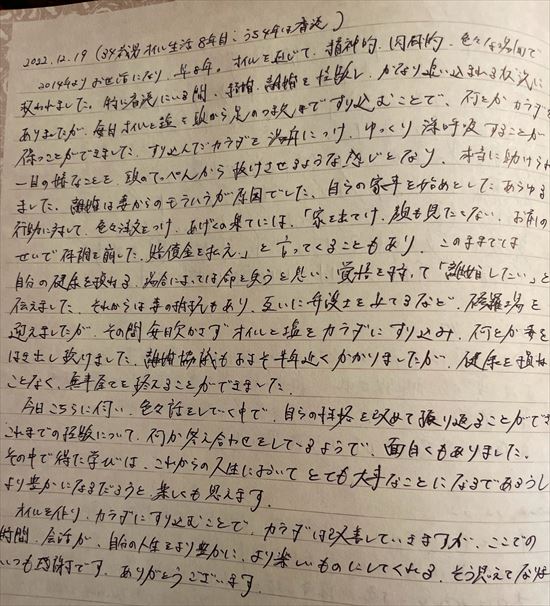 2022.12.19 (34歳男 オイル生活 8年目：うち4年は香港)
2014年よりお世話になり、早8年。オイルを通じて、精神的、肉体的、色々な場面で
救われました。特に香港にいる間、結婚、離婚を経験し、かなり追い込まれる状況に
ありましたが、毎日オイルと塩を頭から足のつま先まですり込むことで、何とかカラダを
保つことができました。すり込んでカラダを湯舟につけ、ゆっくり深呼吸することが
一日の嫌なことを、頭のてっぺんから抜けさせるような感じとなり、本当に助けられ
ました。離婚は妻からのモラハラが原因でした。自らの家事を始めとしたあらゆる
行動に対して、色々注文をつけ、あげくの果てには、「家を出てけ、顔も見たくない、お前の
せいで体調を崩した、賠償金を払え。」と言ってくることもあり、このままでは
自分の健康を損ねる、場合によっては命を失うと思い、覚悟を持って「離婚したい」と
伝えました。それからは妻の抵抗もあり、互いに弁護士を立てるなど、修羅場を
迎えましたが、その間毎日欠かさずオイルと塩をカラダにすり込み、何とか毒を
はき出し救けました。離婚協議もおよそ半年近くかかりましたが、健康を損ねる
ことなく、無事全てを終えることができました。
今日こちらに伺い、色々話をしていく中で、自らの性格を改めて振り返ることができ
これまでの経験について、何か答え合わせをしているようで、面白くもありました。
その中で得た学びは、これからの人生においてとても大事なことになるであろうし
より豊かになるだろうと、楽しくも思えます。
オイルを作り、カラダにすり込むことで、カラダは改善していきますが、ここでの
時間、会話が、自分の人生をより豊かに、より楽しいものにしてくれる、そう思えてなりま
いつも感謝です。ありがとうございます。